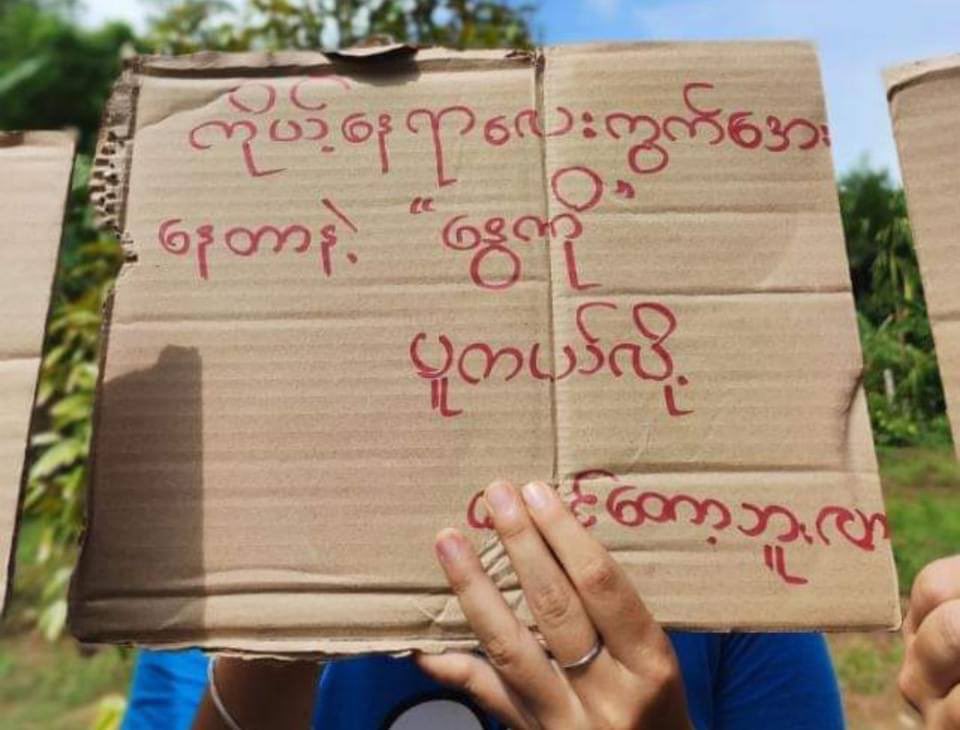 ကိုယ့်နေရာလေးကွက်အေး
နေတာနဲ့ “နွေကို”
ပူကယ်လို့
ထင်တော့ဘူးလာ